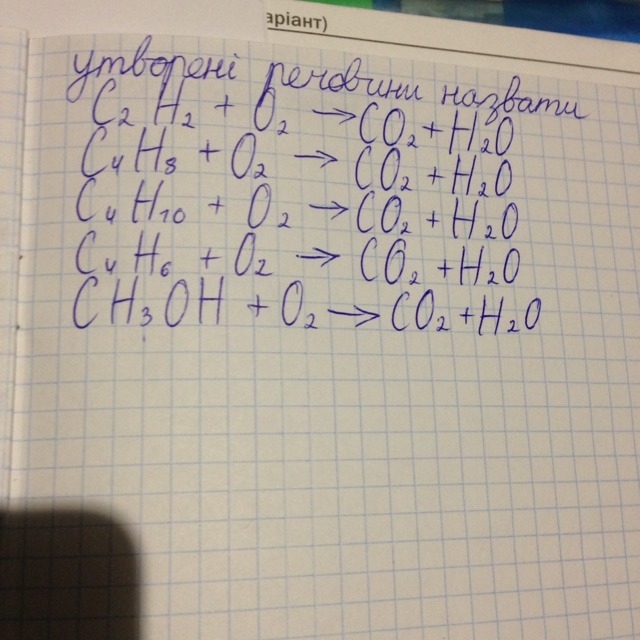 аріант)
утворені речовини назвати
C₂H₂ + O₂ → CO₂ + H₂O
C₄H₈ + O₂ → CO₂ + H₂O
C₄H₁₀ + O₂ → CO₂ + H₂O
C₄H₆ + O₂ → CO₂ + H₂O
CH₃OH + O₂ → CO₂ + H₂O